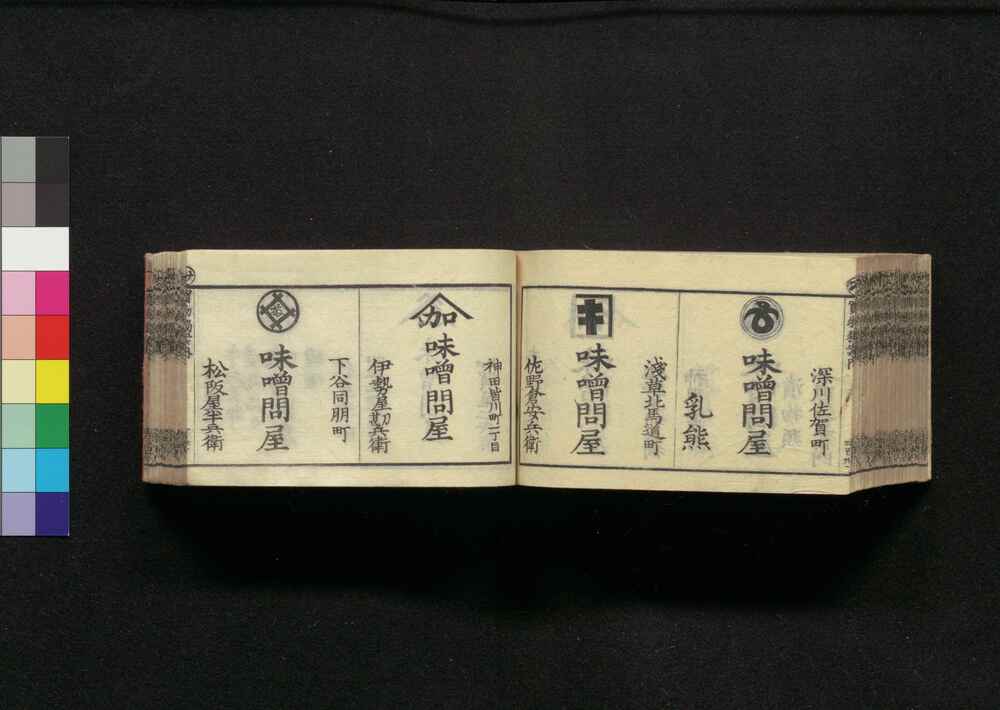 深川佐賀町
味噌問屋
乳熊
淺草北馬道町
キ
味噌問屋
佐野倉安兵衛
神田皆川町二丁目
加
味噌問屋
伊勢屋勘兵衛
下谷同朋町
味噌問屋
松阪屋半兵衛